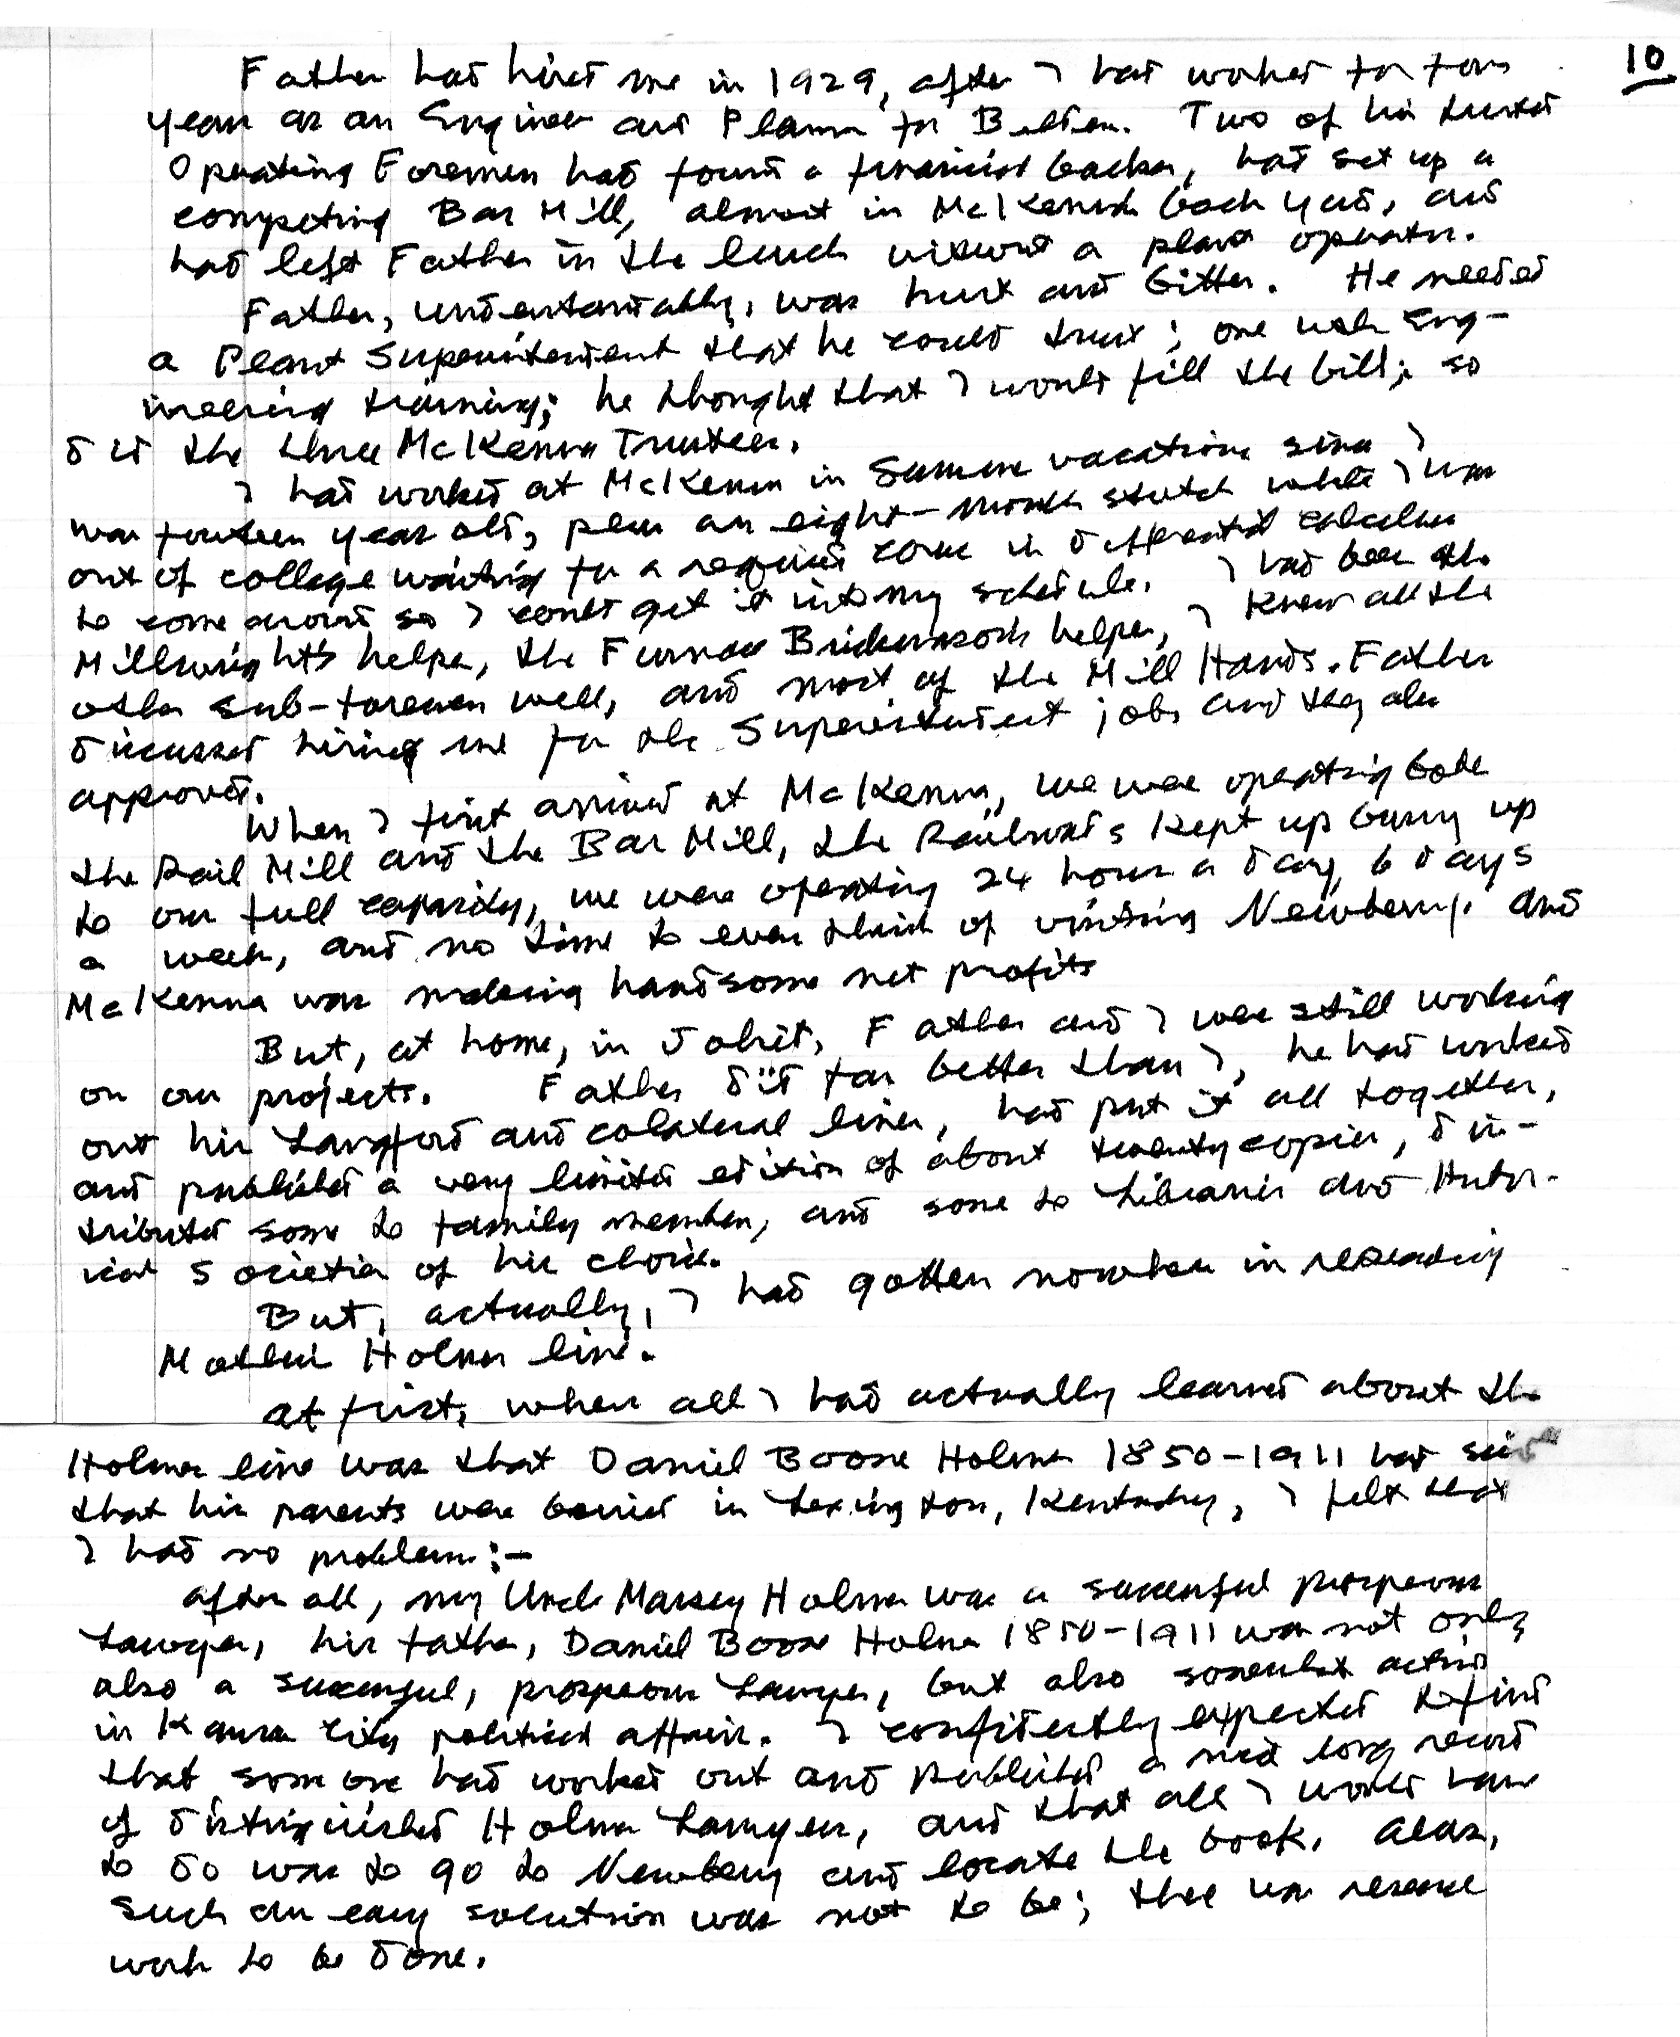 10
Father had hired me in 1929, after I had worked for four
years as an Engineer and Planner for Bulien. Two of his trusted
Operating Foremen had found a financial backer, had set up a
competing Bar Mill, almost in McKenna's back yard, and
had left Father in the lurch without a plant operator.
Father, understandably, was hurt and bitter. He needed
a Plant Superintendent that he could trust; one with Eng-
ineering training; he thought that I would fill the bill; so
did the three McKenna Trustees.
I had worked at McKenna in Summer vacations since I
was fourteen years old, plus an eight-month stretch while I was
out of college waiting for a required course in differential calculus
to come around so I could get it into my schedule. I had been the
Millwright's helper, the Furnace Brickmason's helper, I knew all the
other sub-foremen well, and most of the Mill Hands. Father
discussed hiring me for the Superintendent job, and they also
approved.
When I first arrived at McKenna, we were operating both
the Rail Mill and the Bar Mill, the Railroads kept up buying up
to our full capacity, we were operating 24 hours a day, 6 days
a week, and no time to even think of visiting Newberry. And
McKenna was making handsome net profits
But, at home, in Joliet, Father and I were still working
on our projects. Father did far better than I, he had worked
out his Langford and colateral lines, had put it all together,
and published a very limited edition of about twenty copies, dis-
tributed some to family members, and some to Libraries and Histor-
ical Societies of his choice.
But, actually, I had gotten nowhere in researching
Mother's Holmes line.
At first, when all I had actually learned about the
Holmes line was that Daniel Boone Holmes 1850-1911 had said
that his parents were buried in Lexington, Kentucky, I felt that
I had no problem:-
After all, my Uncle Massey Holmes was a successful prosperous
Lawyer, his father, Daniel Boone Holmes 1850-1911 was not only
also a successful, prosperous Lawyer, but also somewhat active
in Kansas City political affairs. I confidently expected to find
that some one had worked out and published a nice long record
of distinguished Holmes Lawyers, and that all I would have
to do was to go to Newberry and locate the book. Alas,
such an easy solution was not to be; there was research
work to be done.